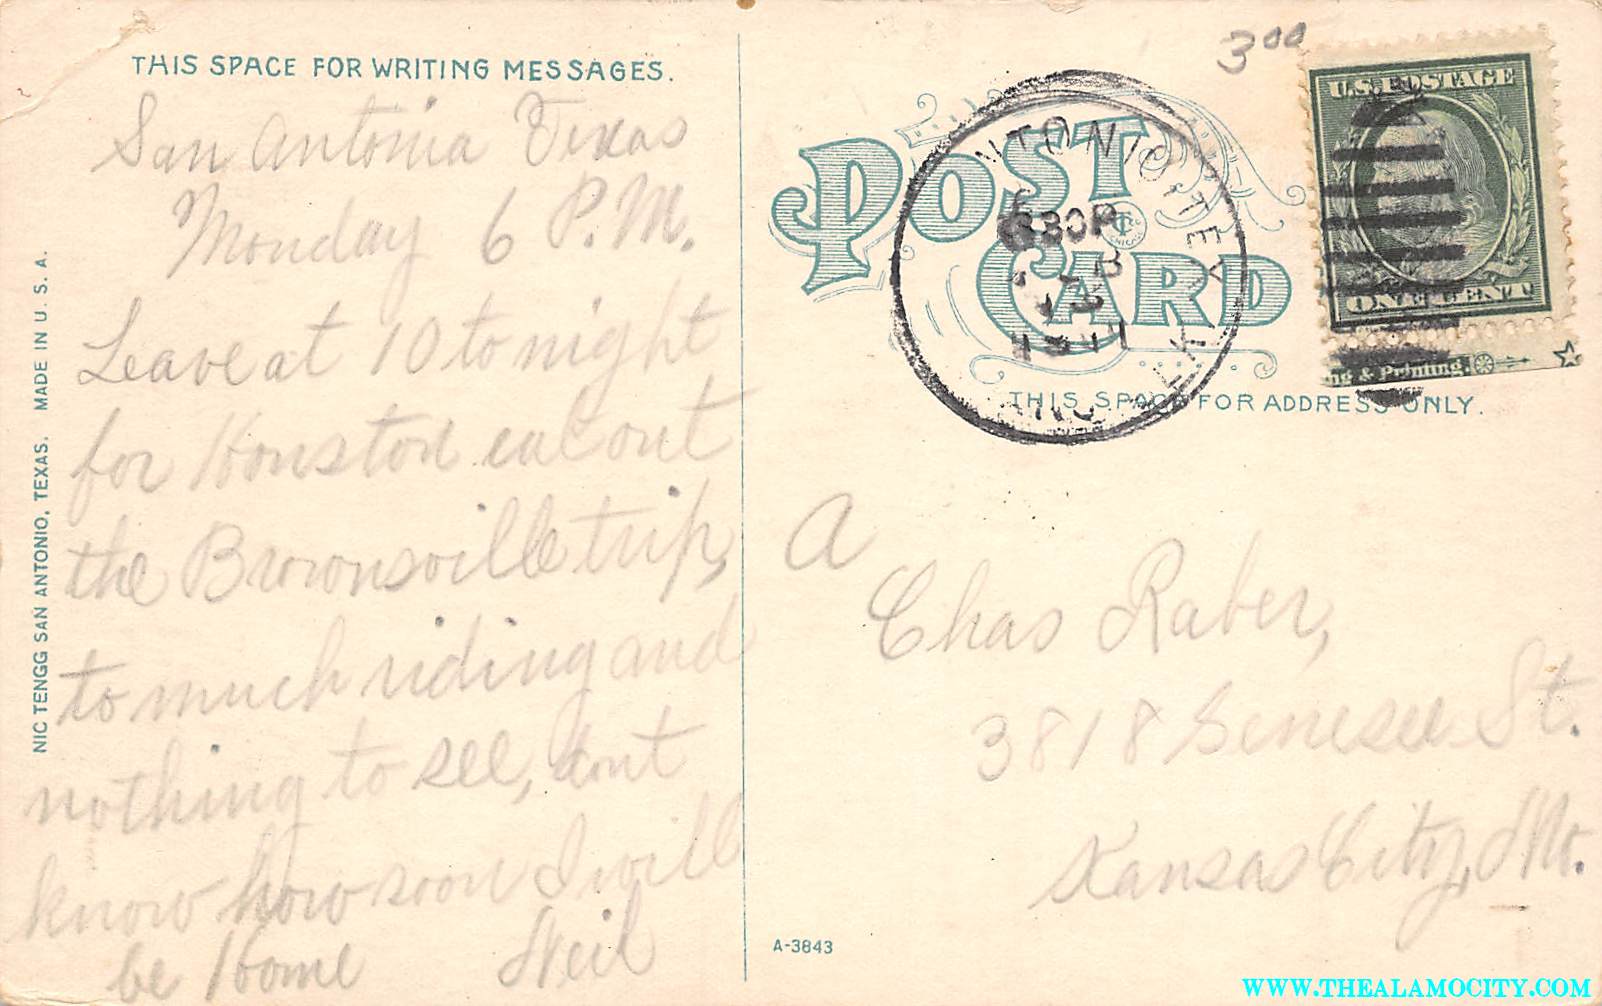 THIS SPACE FOR WRITING MESSAGES.
San Antonia Texas
Monday 6 P.M.
Leave at 10 to night
for Houston cut out
the Brownsville trip,
to much riding and
nothing to see, dont
know how soon I will
be Home Neil
NIC TENGG SAN ANTONIO, TEXAS. MADE IN U. S. A.
300
U.S. POSTAGE
ONE CENT
ng & Printing.
POST CARD
NTONIO, TEX.
630P
THIS SPACE FOR ADDRESS ONLY.
a
Chas Raber,
3818 Genesee St.
Kansas City, Mo.
A-3843
WWW.THEALAMOCITY.COM